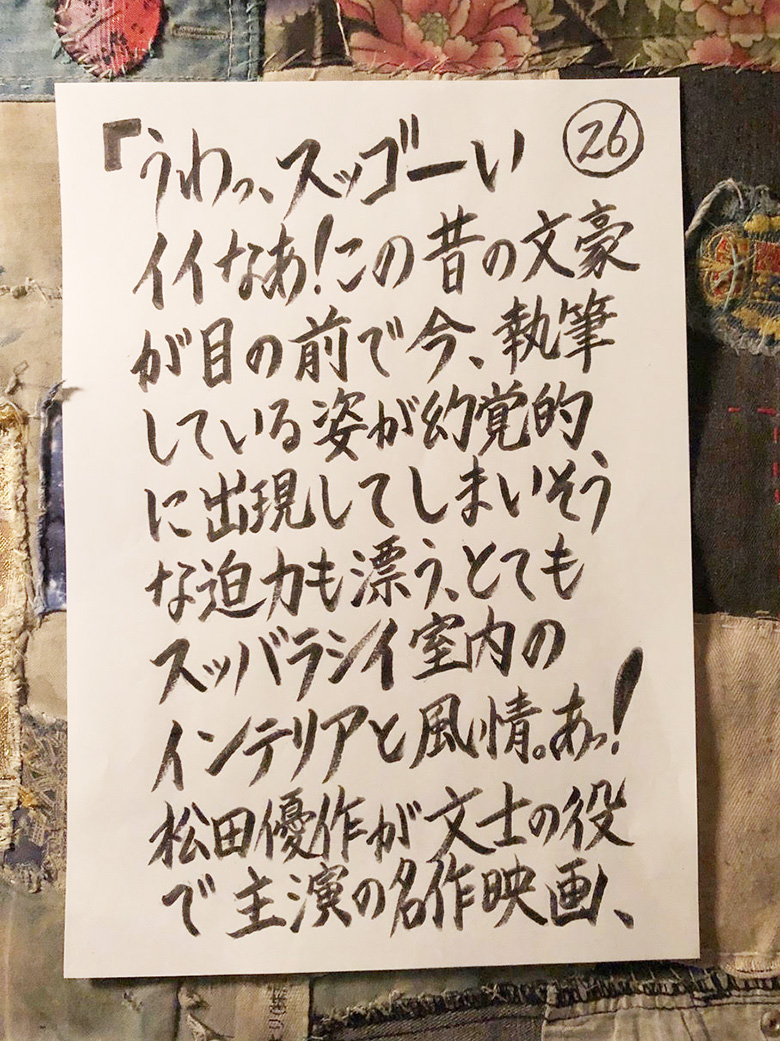 ㉖
『うわっ、スッゴーい
イイなあ!この昔の文豪
が目の前で今、執筆
している姿が幻覚的
に出現してしまいそう
な迫力も漂う、とても
スッバラシイ室内の
インテリアと風情。あっ!
松田優作が文士の役
で主演の名作映画、